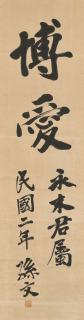 博愛
永木君屬
民國二年 孫文